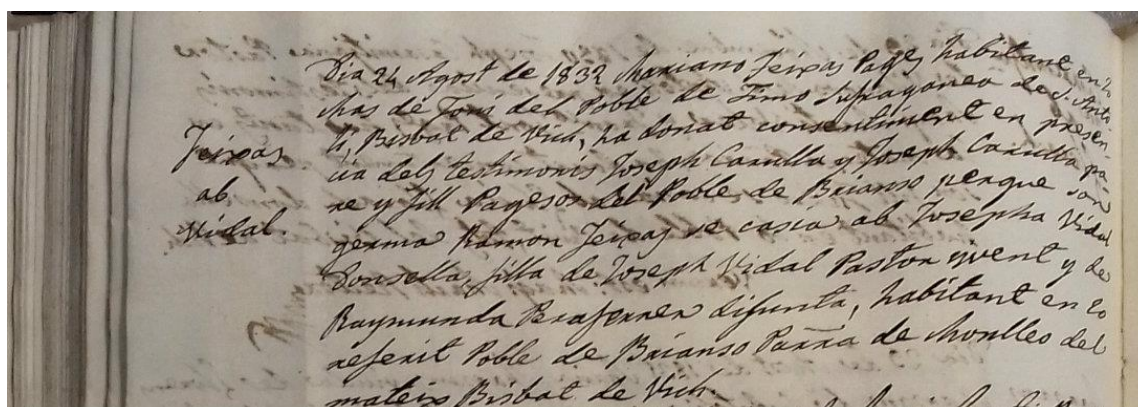 Dia 24 Agost de 1832 Mariano Teixas Pages habitant en lo
Mas de Torà del Poble de Timo sufraganea de S. Anto
li, Bisbat de Vich, ha donat consentiment en presen
cia dels testimonis Joseph Carulla y Joseph Carulla pa
Teixas
re y fill Pagesos del Poble de Brianso perque son
ab
germa Ramon Teixas se casia ab Josepha Vidal
Vidal.
Donsella, filla de Joseph Vidal Pastor vivent y de
Raymunda Peraferrer difunta, habitant en lo
referit Poble de Brianso Parra de Monlleo del
mateix Bisbat de Vich.